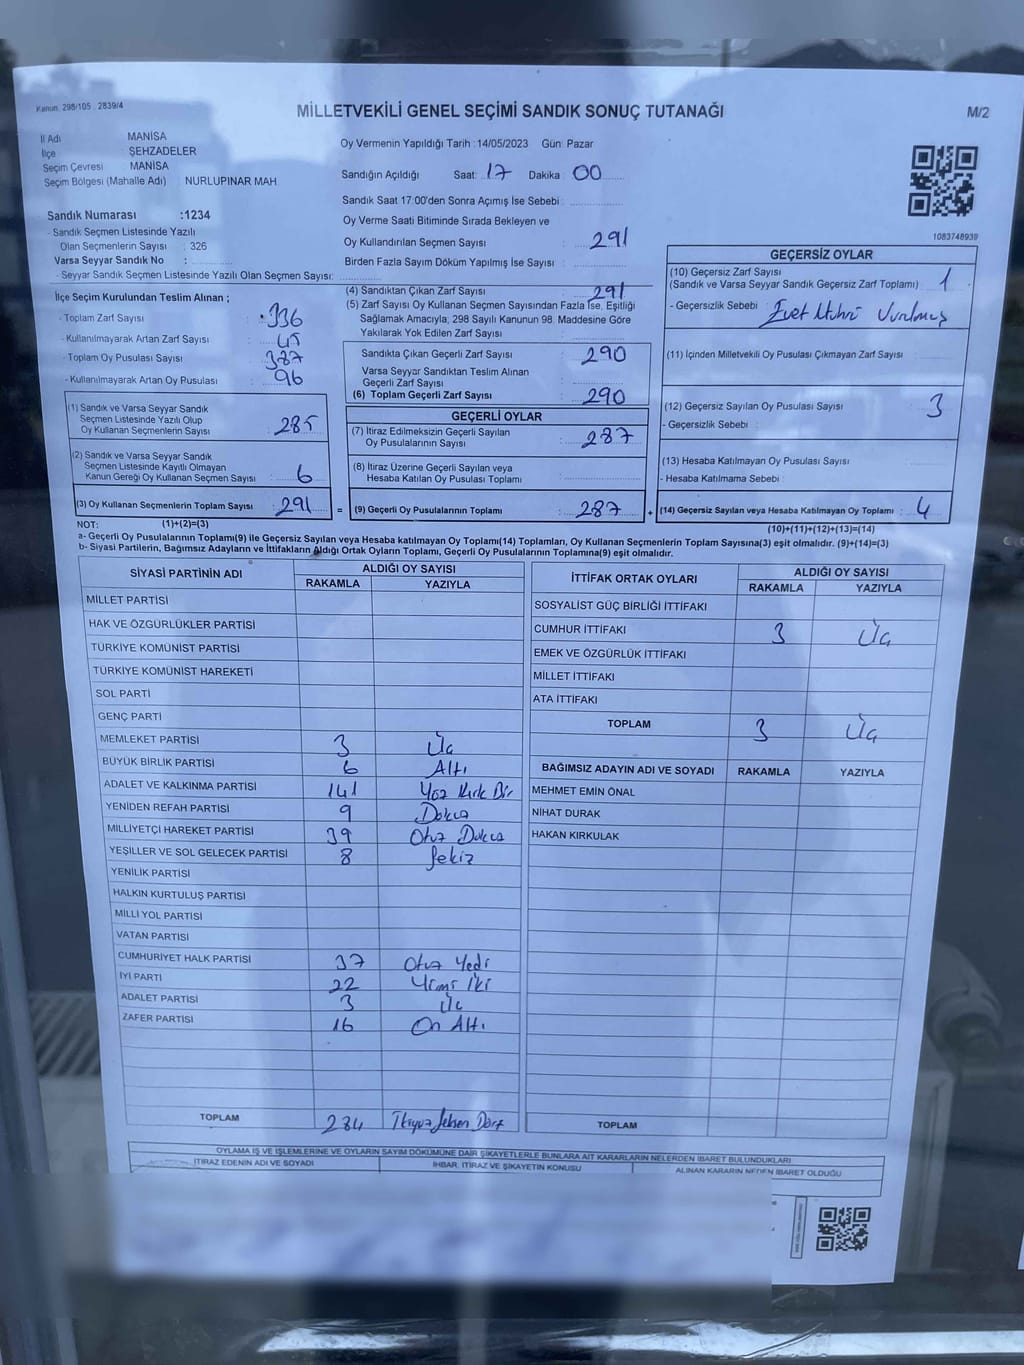 Kanun: 298/105 : 2839/4
MİLLETVEKİLİ GENEL SEÇİMİ SANDIK SONUÇ TUTANAĞI
M/2
İl Adı MANİSA
İlçe ŞEHZADELER
Seçim Çevresi MANİSA
Seçim Bölgesi (Mahalle Adı) NURLUPINAR MAH
Sandık Numarası :1234
- Sandık Seçmen Listesinde Yazılı
Olan Seçmenlerin Sayısı : 326
Varsa Seyyar Sandık No :
- Seyyar Sandık Seçmen Listesinde Yazılı Olan Seçmen Sayısı:
Oy Vermenin Yapıldığı Tarih :14/05/2023 Gün: Pazar
Sandığın Açıldığı Saat: 17 Dakika 00
Sandık Saat 17:00'den Sonra Açımış İse Sebebi :
Oy Verme Saati Bitiminde Sırada Bekleyen ve
Oy Kullandırılan Seçmen Sayısı : 291
Birden Fazla Sayım Döküm Yapılmış İse Sayısı :
1083748939
İlçe Seçim Kurulundan Teslim Alınan ;
- Toplam Zarf Sayısı : 336
- Kullanılmayarak Artan Zarf Sayısı : 45
- Toplam Oy Pusulası Sayısı : 387
- Kullanılmayarak Artan Oy Pusulası : 96
(1) Sandık ve Varsa Seyyar Sandık
Seçmen Listesinde Yazılı Olup
Oy Kullanan Seçmenlerin Sayısı : 285
(2) Sandık ve Varsa Seyyar Sandık
Seçmen Listesinde Kayıtlı Olmayan
Kanun Gereği Oy Kullanan Seçmen Sayısı : 6
(3) Oy Kullanan Seçmenlerin Toplam Sayısı : 291 =
(4) Sandıktan Çıkan Zarf Sayısı : 291
(5) Zarf Sayısı Oy Kullanan Seçmen Sayısından Fazla İse, Eşitliği
Sağlamak Amacıyla; 298 Sayılı Kanunun 98. Maddesine Göre
Yakılarak Yok Edilen Zarf Sayısı :
Sandıkta Çıkan Geçerli Zarf Sayısı : 290
Varsa Seyyar Sandıktan Teslim Alınan
Geçerli Zarf Sayısı :
(6) Toplam Geçerli Zarf Sayısı : 290
GEÇERLİ OYLAR
(7) İtiraz Edilmeksizin Geçerli Sayılan
Oy Pusulalarının Sayısı : 287
(8) İtiraz Üzerine Geçerli Sayılan veya
Hesaba Katılan Oy Pusulası Toplamı :
(9) Geçerli Oy Pusulalarının Toplamı : 287 +
GEÇERSİZ OYLAR
(10) Geçersiz Zarf Sayısı
(Sandık ve Varsa Seyyar Sandık Geçersiz Zarf Toplamı) : 1
- Geçersizlik Sebebi : Evet Mührü Vurulmuş
(11) İçinden Milletvekili Oy Pusulası Çıkmayan Zarf Sayısı :
(12) Geçersiz Sayılan Oy Pusulası Sayısı : 3
- Geçersizlik Sebebi :
(13) Hesaba Katılmayan Oy Pusulası Sayısı :
- Hesaba Katılmama Sebebi :
(14) Geçersiz Sayılan veya Hesaba Katılmayan Oy Toplamı : 4
NOT: (1)+(2)=(3)
(10)+(11)+(12)+(13)=(14)
a- Geçerli Oy Pusulalarının Toplamı(9) ile Geçersiz Sayılan veya Hesaba katılmayan Oy Toplamı(14) Toplamları, Oy Kullanan Seçmenlerin Toplam Sayısına(3) eşit olmalıdır. (9)+(14)=(3)
b- Siyasi Partilerin, Bağımsız Adayların ve İttifakların Aldığı Ortak Oyların Toplamı, Geçerli Oy Pusulalarının Toplamına(9) eşit olmalıdır.
SİYASİ PARTİNİN ADI ALDIĞI OY SAYISI
RAKAMLA YAZIYLA
MİLLET PARTİSİ
HAK VE ÖZGÜRLÜKLER PARTİSİ
TÜRKİYE KOMÜNİST PARTİSİ
TÜRKİYE KOMÜNİST HAREKETİ
SOL PARTİ
GENÇ PARTİ
MEMLEKET PARTİSİ 3 Üç
BÜYÜK BİRLİK PARTİSİ 6 Altı
ADALET VE KALKINMA PARTİSİ 141 Yüz Kırk Bir
YENİDEN REFAH PARTİSİ 9 Dokuz
MİLLİYETÇİ HAREKET PARTİSİ 39 Otuz Dokuz
YEŞİLLER VE SOL GELECEK PARTİSİ 8 Sekiz
YENİLİK PARTİSİ
HALKIN KURTULUŞ PARTİSİ
MİLLİ YOL PARTİSİ
VATAN PARTİSİ
CUMHURİYET HALK PARTİSİ 37 Otuz Yedi
İYİ PARTİ 22 Yirmi İki
ADALET PARTİSİ 3 Üç
ZAFER PARTİSİ 16 On Altı
TOPLAM 284 İkiyüz Seksen Dört
İTTİFAK ORTAK OYLARI ALDIĞI OY SAYISI
RAKAMLA YAZIYLA
SOSYALİST GÜÇ BİRLİĞİ İTTİFAKI
CUMHUR İTTİFAKI 3 Üç
EMEK VE ÖZGÜRLÜK İTTİFAKI
MİLLET İTTİFAKI
ATA İTTİFAKI
TOPLAM 3 Üç
BAĞIMSIZ ADAYIN ADI VE SOYADI RAKAMLA YAZIYLA
MEHMET EMİN ÖNAL
NİHAT DURAK
HAKAN KIRKULAK
TOPLAM
OYLAMA İŞ VE İŞLEMLERİNE VE OYLARIN SAYIM DÖKÜMÜNE DAİR ŞİKAYETLERLE BUNLARA AİT KARARLARIN NELERDEN İBARET BULUNDUKLARI
İTİRAZ EDENİN ADI VE SOYADI İHBAR, İTİRAZ VE ŞİKAYETİN KONUSU ALINAN KARARIN NEDEN İBARET OLDUĞU